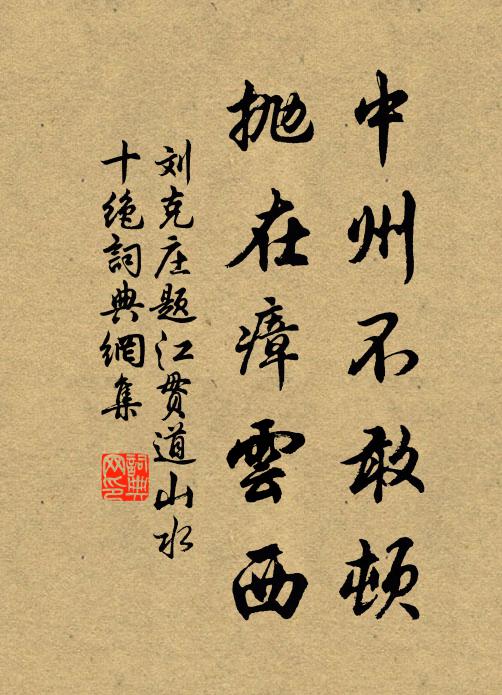 中州不敢頓
抛在瘴雲西
刘克庄題江贯道山水
十绝詞典網集
詞典网印